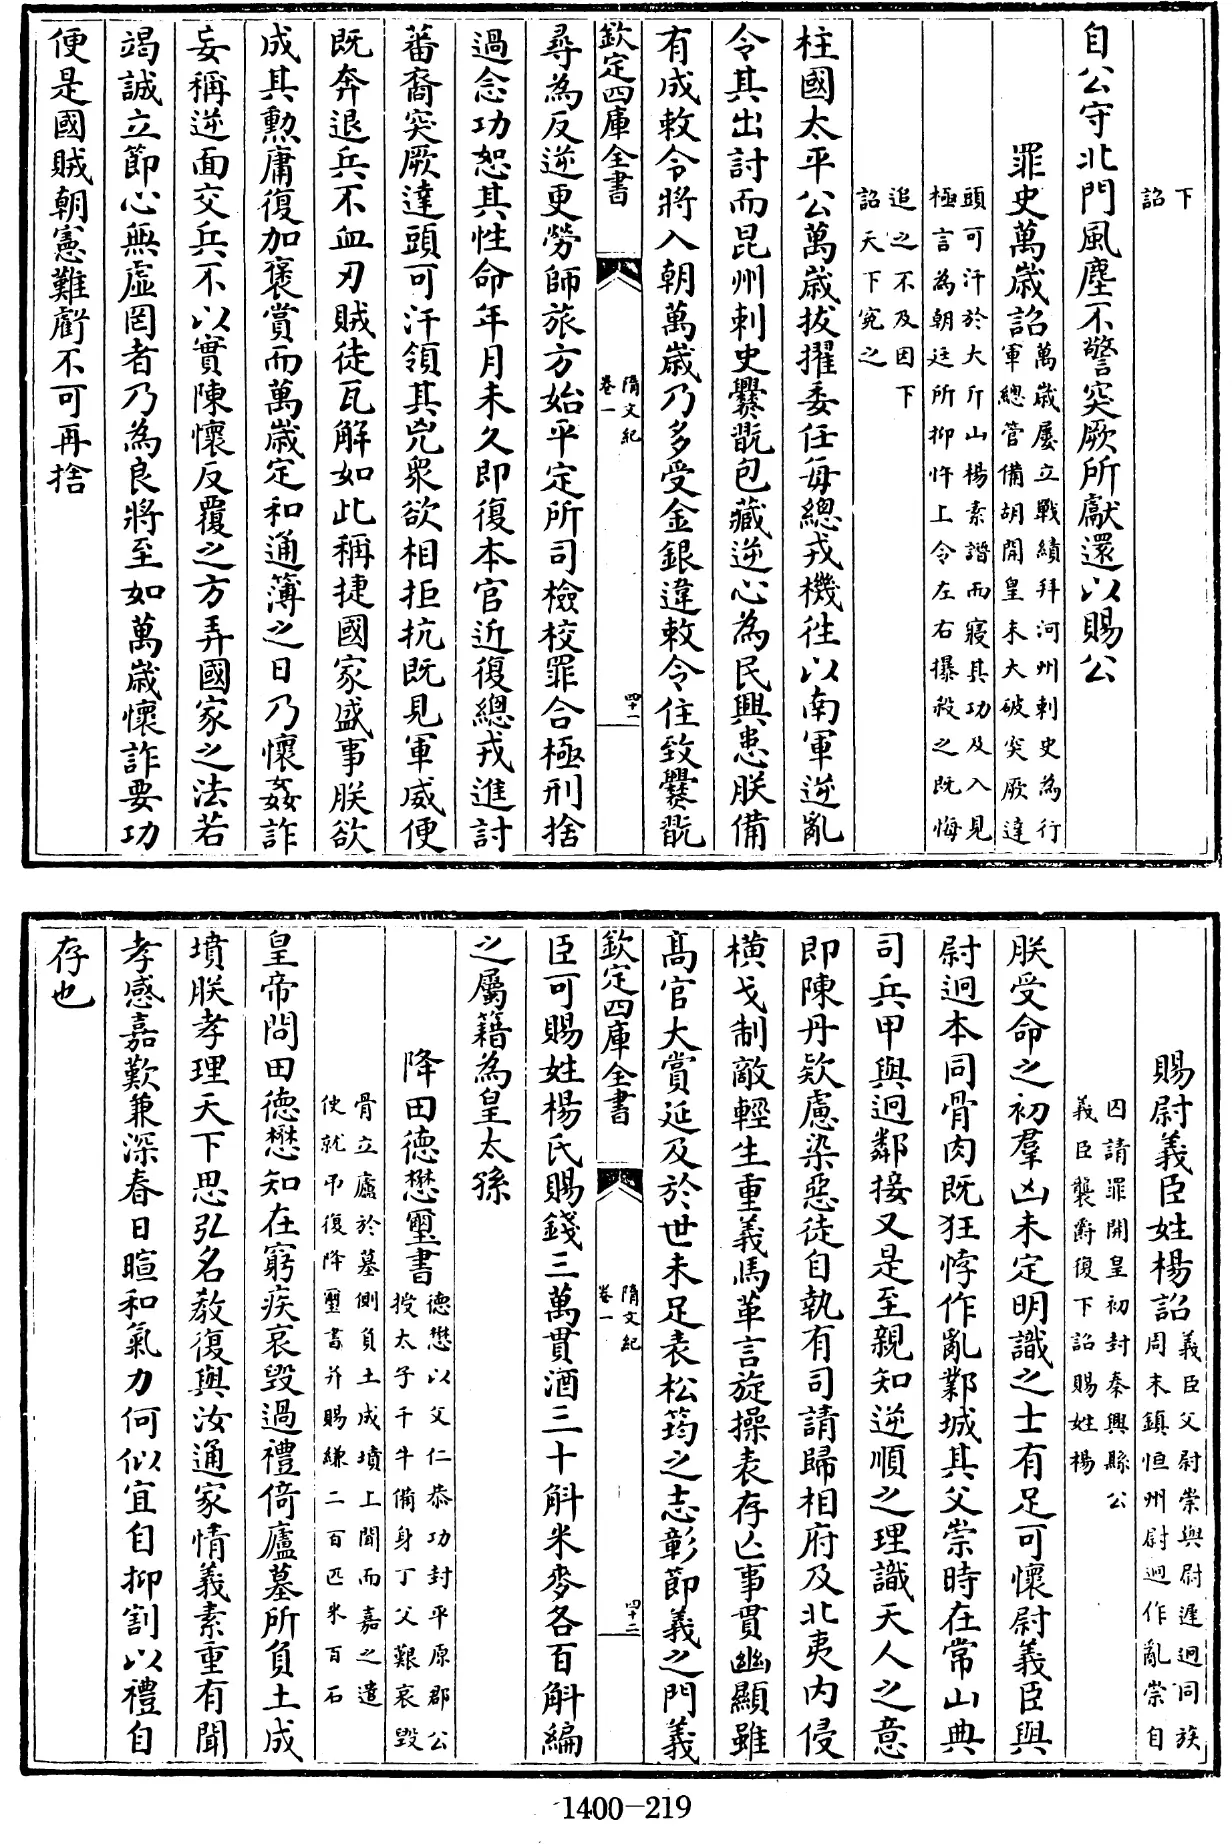 下
詔
自公守北門風塵不警突厥所獻還以賜公
罪史萬歲詔萬歲屢立戰績拜河州刺史為行
軍總管備胡開皇末大破突厥達
頭可汗於大斤山楊素譖而寢其功及入見
極言為朝廷所抑忤上令左右㩧殺之既悔
追之不及因下
詔天下寃之
柱國太平公萬歲拔擢委任每總戎機徃以南寧逆亂
令其出討而昆州刺史爨翫包藏逆心為民興患朕備
有成敕令將入朝萬歲乃多受金銀違敕令住致爨翫
欽定四庫全書
隋文紀
卷一
四十一
尋為反逆更勞師旅方始平定所司檢校罪合極刑捨
過念功恕其性命年月未久即復本官近復總戎進討
蕃裔突厥達頭可汗領其兇衆欲相拒抗既見軍威便
既奔退兵不血刃賊徒瓦解如此稱捷國家盛事朕欲
成其勲庸復加褒賞而萬歲定和通簿之日乃懷姦詐
妄稱逆面交兵不以實陳懷反覆之方弄國家之法若
竭誠立節心無虛罔者乃為良將至如萬歲懷詐要功
便是國賊朝憲難虧不可再捨
賜尉義臣姓楊詔義臣父尉崇與尉遲迥同族
周末鎮恒州尉迥作亂崇自
囚請罪開皇初封秦興縣公
義臣襲爵復下詔賜姓楊
朕受命之初羣凶未定明識之士有足可懷尉義臣與
尉迥本同骨肉既狂悖作亂鄴城其父崇時在常山典
司兵甲與迥鄰接又是至親知逆順之理識天人之意
即陳丹欵慮染惡徒自執有司請歸相府及北夷内侵
橫戈制敵輕生重義馬革言旋操表存亡事貫幽顯雖
髙官大賞延及於世未足表松筠之志彰節義之門義
欽定四庫全書
隋文紀
卷一
四十二
臣可賜姓楊氏賜錢三萬貫酒三十斛米麥各百斛編
之屬籍為皇太孫
降田德懋璽書德懋以父仁恭功封平原郡公
授太子千牛備身丁父艱哀毀
骨立廬於墓側負土成墳上聞而嘉之遣
使就弔復降璽書并賜縑二百匹米百石
皇帝問田德懋知在窮疾哀毀過禮倚廬墓所負土成
墳朕孝理天下思弘名教復與汝通家情義素重有聞
孝感嘉歎兼深春日暄和氣力何似宜自抑割以禮自
存也
1400-219